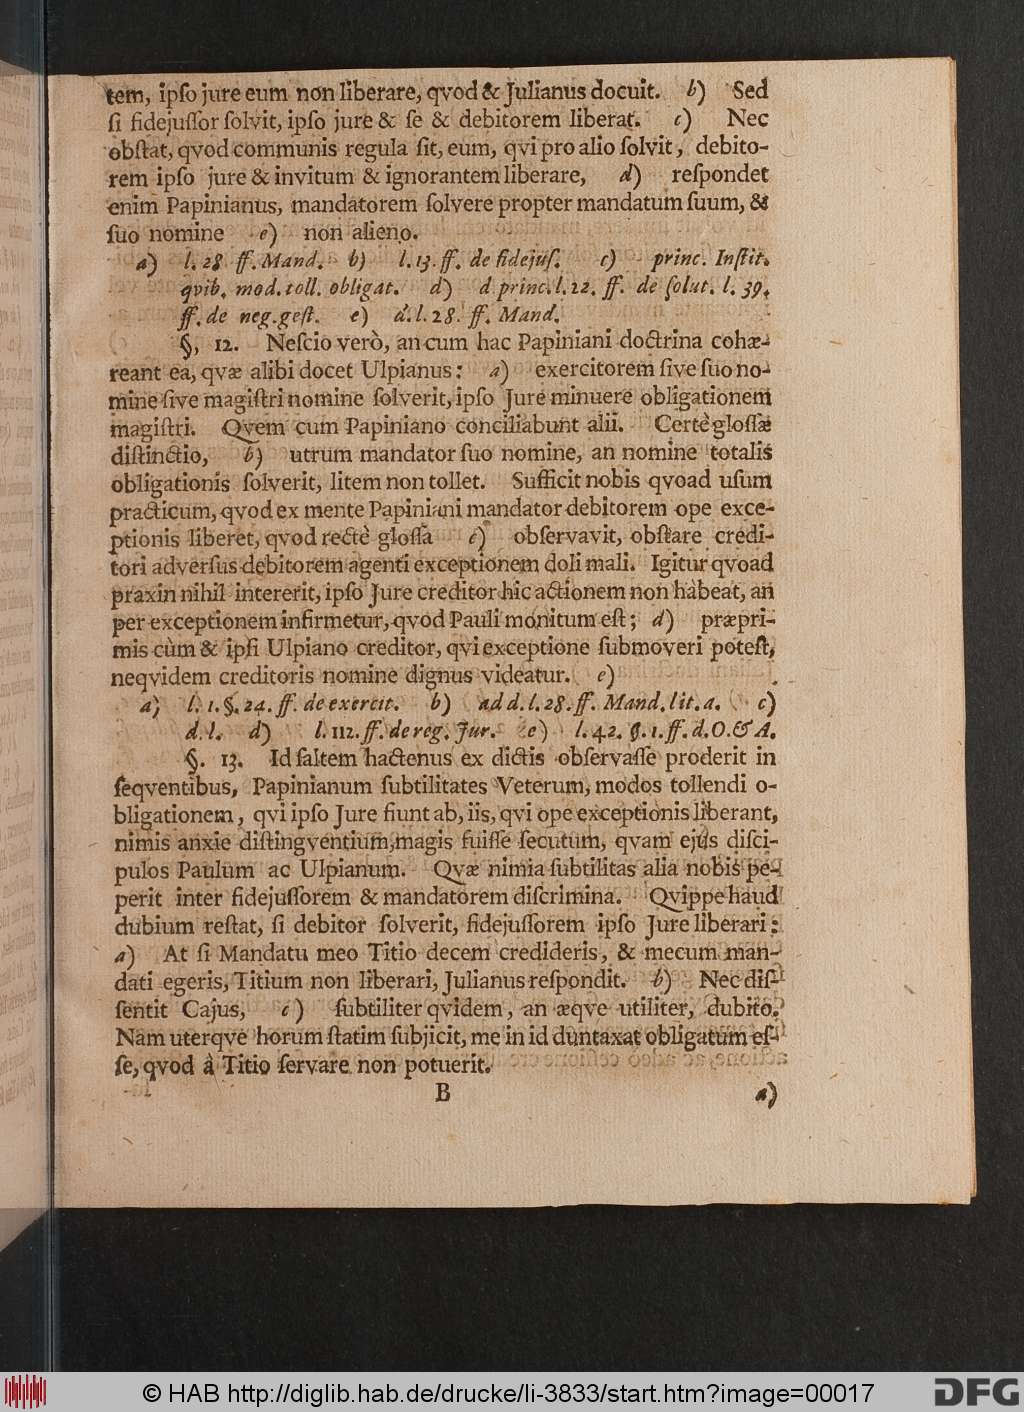 tem, ipſo jure eum non liberare, qvod & Julianus docuit. b) Sed
ſi fidejuſſor ſolvit, ipſo jure & ſe & debitorem liberat. c) Nec
obſtat, qvod communis regula ſit, eum, qvi pro alio ſolvit, debito-
rem ipſo jure & invitum & ignorantem liberare, d) reſpondet
enim Papinianus, mandatorem ſolvere propter mandatum ſuum, &
ſuo nomine e) non alieno.
a) l. 28. ff. Mand. b) l. 13. ff. de fidejuſ. c) princ. Inſtit.
qvib. mod. toll. obligat. d) d. princ. l. 22. ff. de ſolut. l. 39.
ff. de neg. geſt. e) d. l. 28. ff. Mand.
§. 12. Neſcio verò, an cum hac Papiniani doctrina cohæ-
reant ea, qvæ alibi docet Ulpianus: a) exercitorem ſive ſuo no-
mine ſive magiſtri nomine ſolverit, ipſo Jure minuere obligationem
magiſtri. Qvem cum Papiniano conciliabunt alii. Certè gloſſæ
diſtinctio, b) utrum mandator ſuo nomine, an nomine totalis
obligationis ſolverit, litem non tollet. Sufficit nobis qvoad uſum
practicum, qvod ex mente Papiniani mandator debitorem ope exce-
ptionis liberet, qvod rectè gloſſa c) obſervavit, obſtare credi-
tori adverſus debitorem agenti exceptionem doli mali. Igitur qvoad
praxin nihil intererit, ipſo Jure creditor hic actionem non habeat, an
per exceptionem infirmetur, qvod Pauli monitum eſt; d) præpri-
mis cùm & ipſi Ulpiano creditor, qvi exceptione ſubmoveri poteſt,
neqvidem creditoris nomine dignus videatur. e)
a) l. 1. §. 24. ff. de exercit. b) ad d. l. 28. ff. Mand. lit. a. c)
d. l. d) l. 112. ff. de reg. Jur. e) l. 42. §. 1. ff. d. O. & A.
§. 13. Id ſaltem hactenus ex dictis obſervaſſe proderit in
ſeqventibus, Papinianum ſubtilitates Veterum, modos tollendi o-
bligationem, qvi ipſo Jure fiunt ab, iis, qvi ope exceptionis liberant,
nimis anxie diſtingventium, magis fuiſſe ſecutum, qvam ejus diſci-
pulos Paulum ac Ulpianum. Qvæ nimia ſubtilitas alia nobis pe-
perit inter fidejuſſorem & mandatorem diſcrimina. Qvippe haud
dubium reſtat, ſi debitor ſolverit, fidejuſſorem ipſo Jure liberari:
a) At ſi Mandatu meo Titio decem credideris, & mecum man-
dati egeris, Titium non liberari, Julianus reſpondit. b) Nec diſ-
ſentit Cajus, c) ſubtiliter qvidem, an æqve utiliter, dubito.
Nam uterqve horum ſtatim ſubjicit, me in id duntaxat obligatum eſ-
ſe, qvod à Titio ſervare non potuerit.
B a)
© HAB http://diglib.hab.de/drucke/li-3833/start.htm?image=00017
DFG